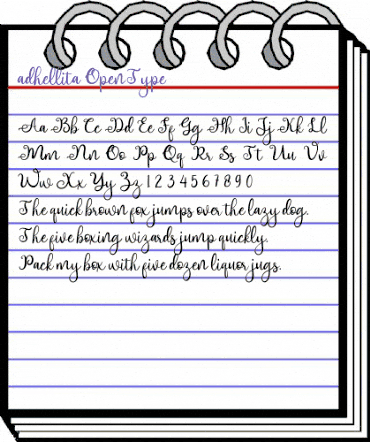 adhellita OpenType
Aa Bb Cc Dd Ee Ff Gg Hh Ii Jj Kk Ll
Mm Nn Oo Pp Qq Rr Ss Tt Uu Vv
Ww Xx Yy Zz 1 2 3 4 5 6 7 8 9 0
The quick brown fox jumps over the lazy dog.
The five boxing wizards jump quickly.
Pack my box with five dozen liquor jugs.